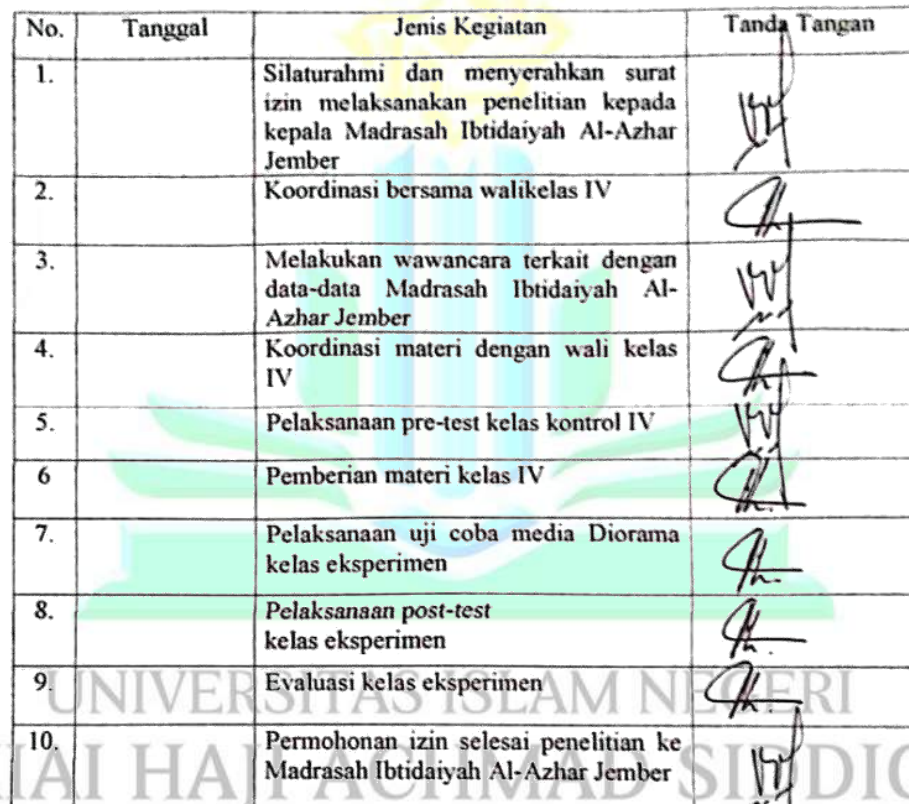 No. Tanggal Jenis Kegiatan Tanda Tangan
1. Silaturahmi dan menyerahkan surat
izin melaksanakan penelitian kepada
kepala Madrasah Ibtidaiyah Al-Azhar
Jember
2. Koordinasi bersama walikelas IV
3. Melakukan wawancara terkait dengan
data-data Madrasah Ibtidaiyah Al-
Azhar Jember
4. Koordinasi materi dengan wali kelas
IV
5. Pelaksanaan pre-test kelas kontrol IV
6 Pemberian materi kelas IV
7. Pelaksanaan uji coba media Diorama
kelas eksperimen
8. Pelaksanaan post-test
kelas eksperimen
9. Evaluasi kelas eksperimen
UNIVERSITAS ISLAM NEGERI
10. Permohonan izin selesai penelitian ke
Madrasah Ibtidaiyah Al-Azhar Jember
HAJI ACHMAD